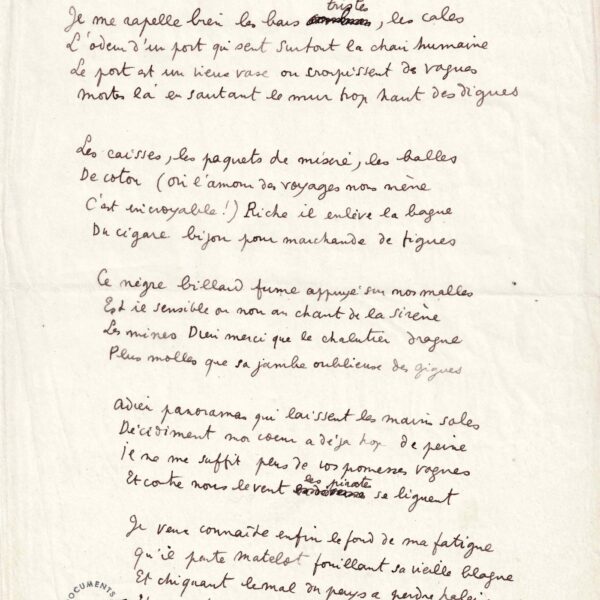 Je me rapelle bien les bars tristes, les cales
L'odeur d'un port qui sent surtout la chair humaine
Le port est un vieux vase ou croupissent de vagues
mortes là en sautant le mur trop haut des digues
Les caisses, les paquets de misère, les balles
De coton (où l'amour des voyages nous mène
C'est incroyable!) Riche il enlève la bague
Du cigare bijou pour marchande de figues
Ce nègre billard fume appuyé sur nos malles
Est il sensible ou non au chant de la sirène
Les mines Dieu merci que le chalutier drague
Plus molles que sa jambe oublieuse des gigues
Adieu panoramas qui laissent les mains sales
Décidiment mon coeur a déja trop de peine
Je ne me suffit plus de vos promesses vagues
Et contre nous le vent les pirates se liguent
Je veux connaître enfin le fond de ma fatigue
qu'il parte matelot fouillant sa vieille blague
Et chiquant le mal du pays a perdre
DOCUMENTS